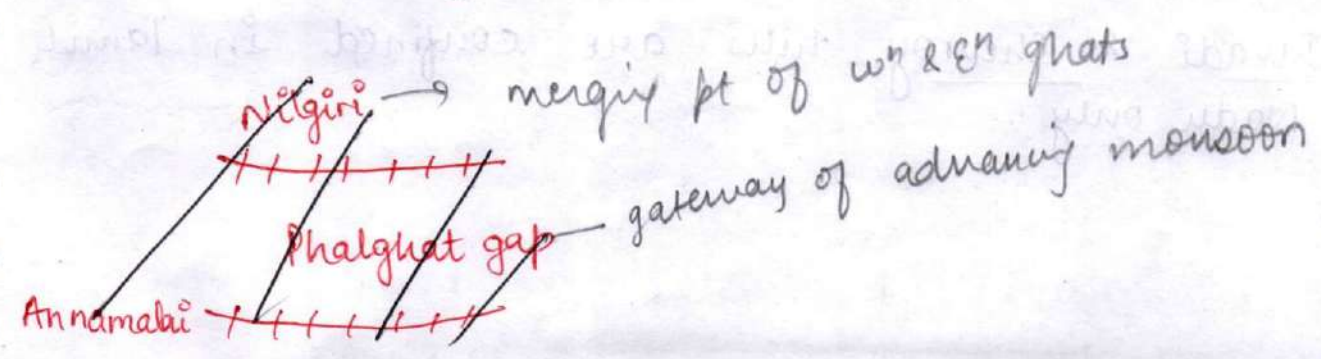 Nilgiri → merging pt of wⁿ & Eⁿ ghats
Phalghat gap — gateway of advancing monsoon
Annamalai